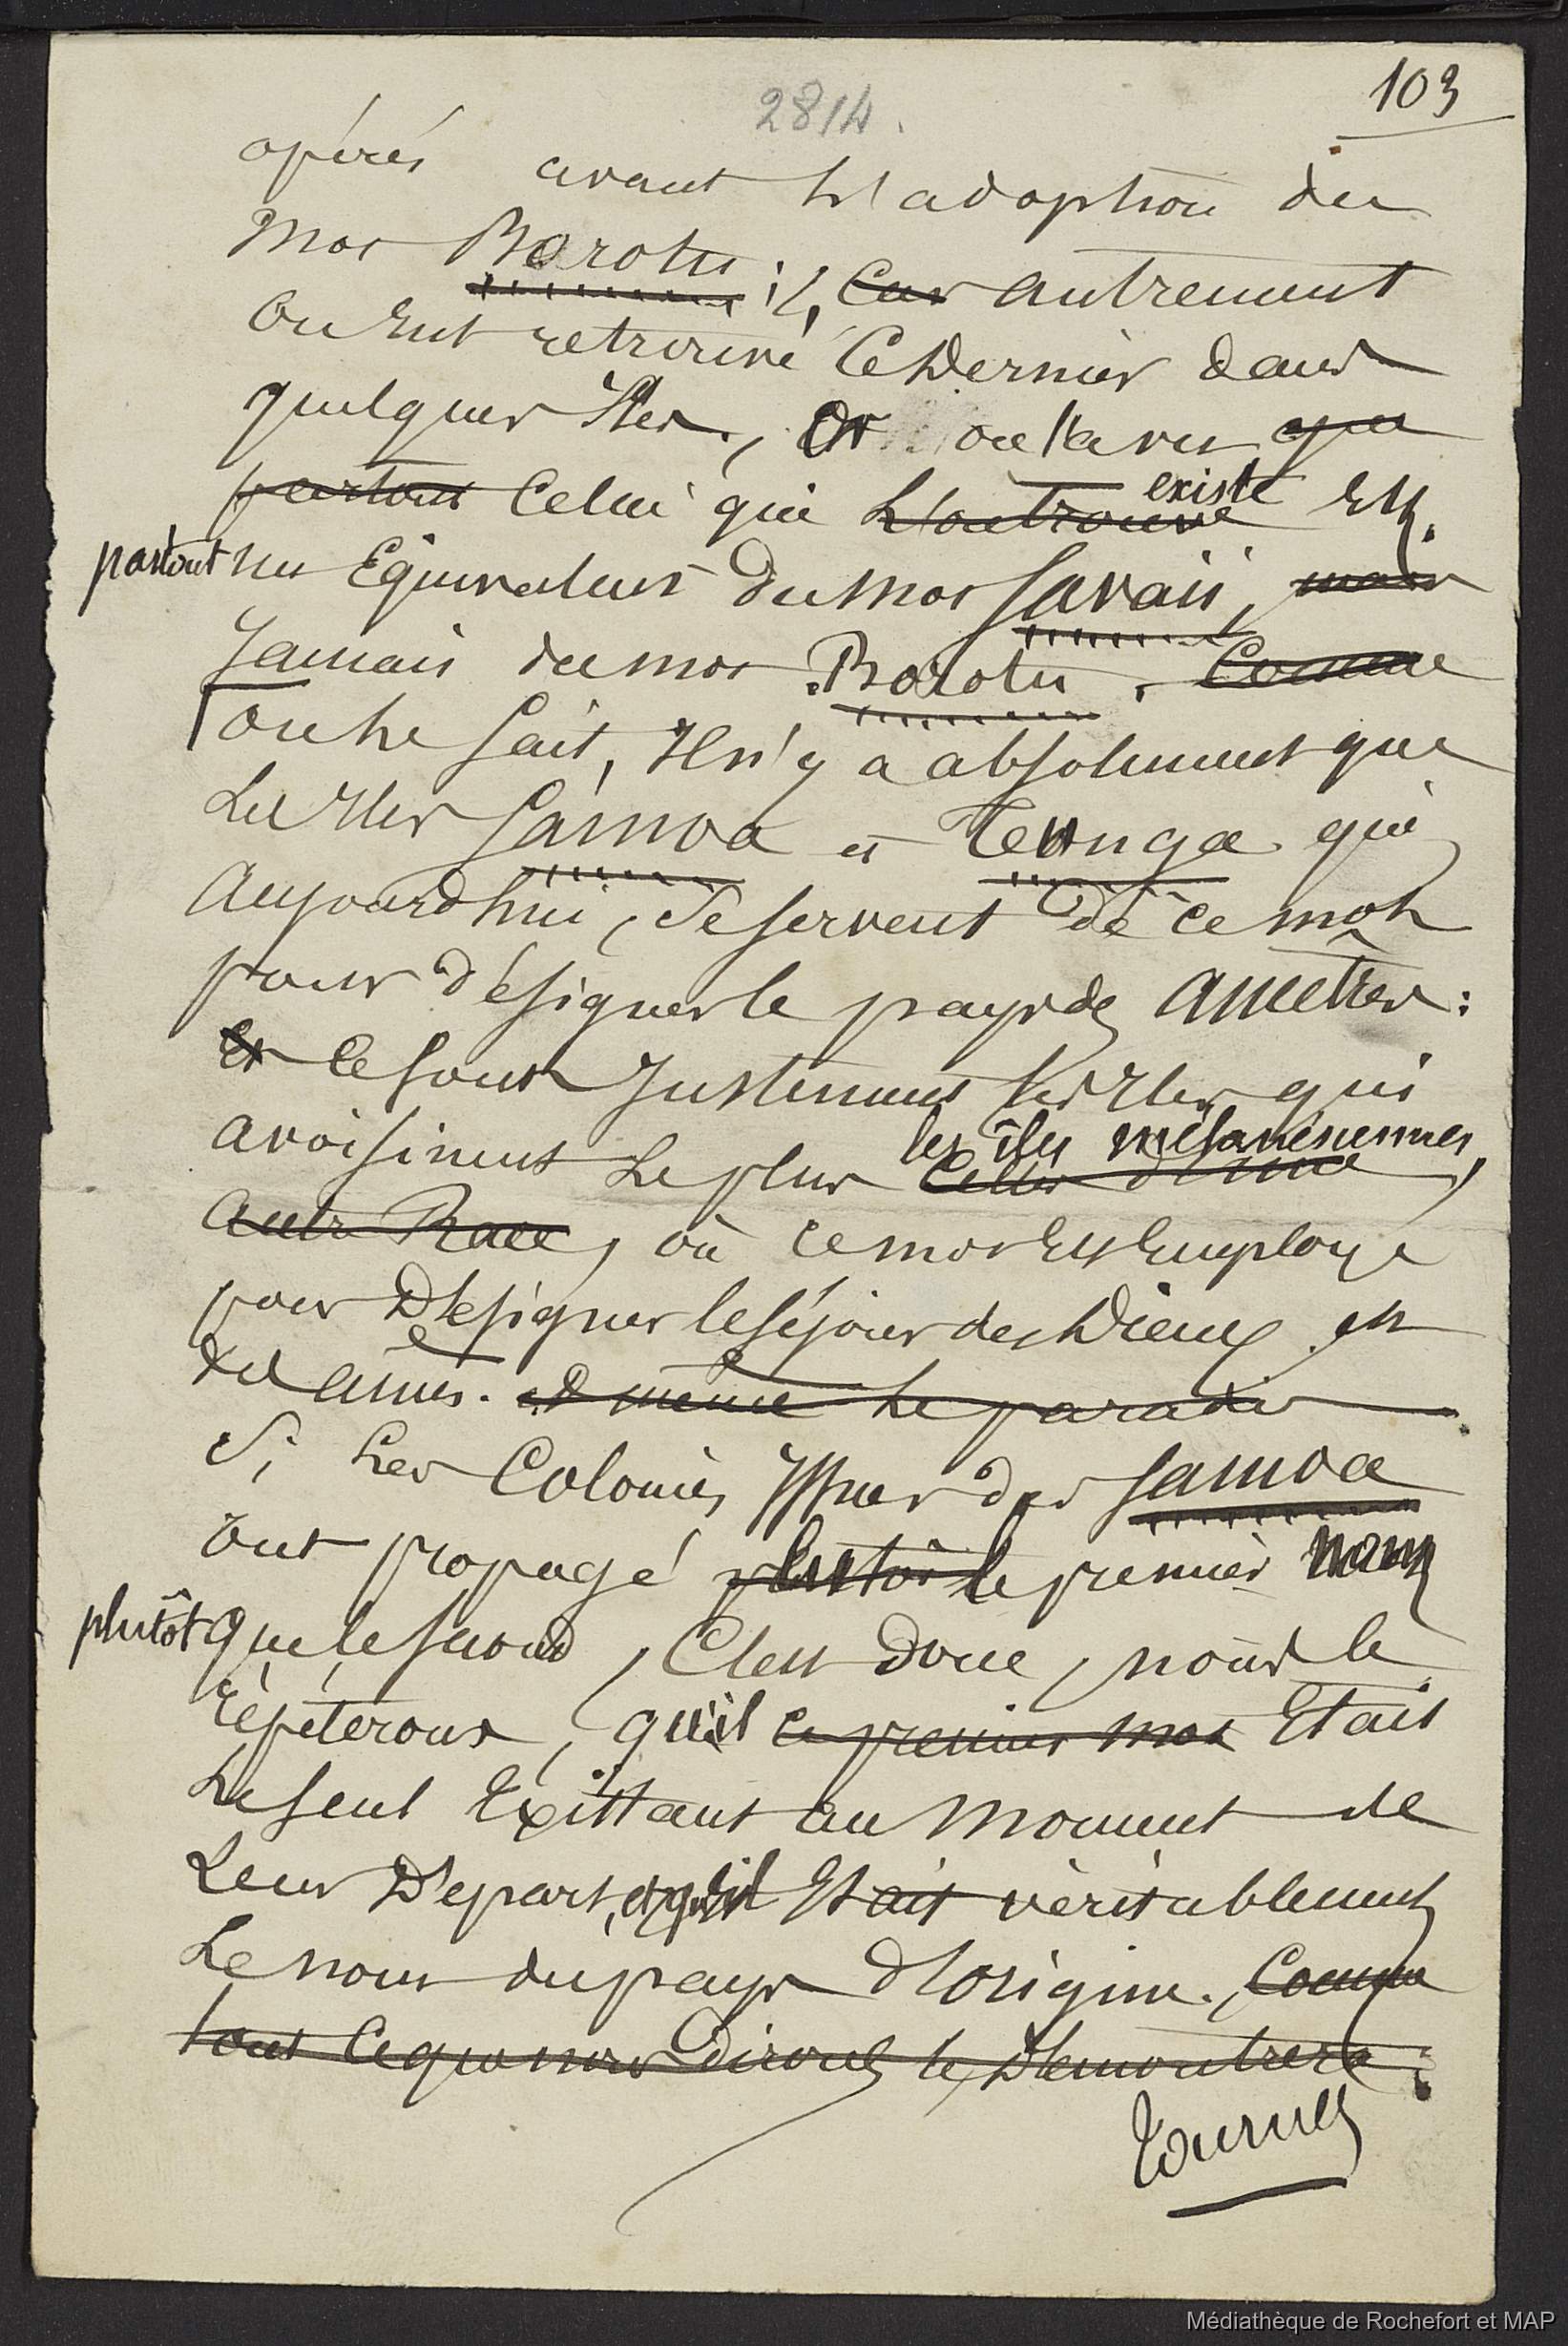 103
2814.
opérés avant l'adoption du
mot Borotu ; Car autrement
on eut retrouvé ce dernier dans
quelques Iles, Or on l'a vu que
partout celui qui l'on trouve existe est
partout un équivalent du mot Savaii, mais
Jamais du mot Borotu. Comme
on le sait, Il n'y a absolument que
les Iles Samoa et Tunga qui
Aujourd'hui, se servent de ce mot
pour désigner le pays des Ancêtres :
Et ce sont Justement les Iles qui
avoisinent le plus les îles mélanésiennes, celles d'une
autre Race, où ce mot est employé
pour Désigner le séjour des Dieux et
des âmes. et même le paradis
Si les Colonies Issues des Samoa
ont propagé plutôt le premier nom
plutôt que le second, C'est donc, nous le
répéterons, qu'il ce premier mot Etait
Le seul Existant au Moment de
Leur Départ, et qu'il Etait véritablement
Le nom du pays d'Origine. Comme
tout ce que nous dirons le Démontrera.
Tournez
Médiathèque de Rochefort et MAP